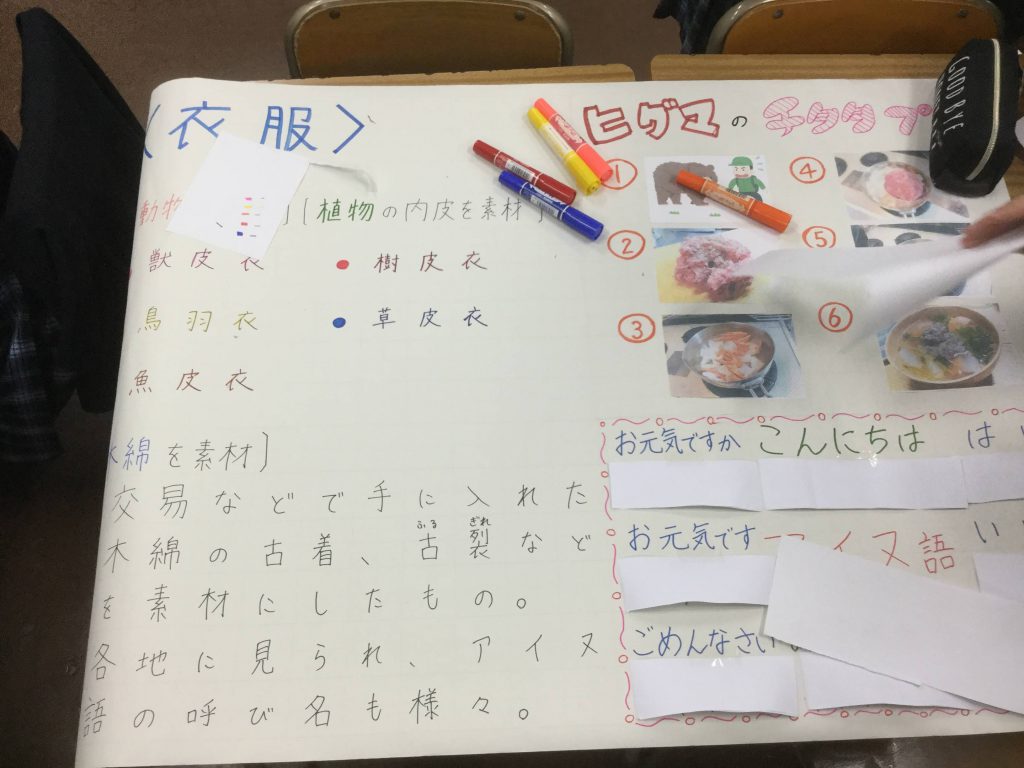 〈衣服〉
動物
〔植物の内皮を素材
獣皮衣
● 樹皮衣
鳥羽衣
● 草皮衣
魚皮衣
綿を素材〕
交易などで手に入れた
木綿の古着、古裂など
ふる ぎれ
を素材にしたもの。
各地に見られ、アイヌ
語の呼び名も様々。
ヒグマのチタタプ
①
②
③
④
⑤
⑥
お元気ですか こんにちは は
お元気です イヌ語 い
ごめんなさい
GOOD BYE